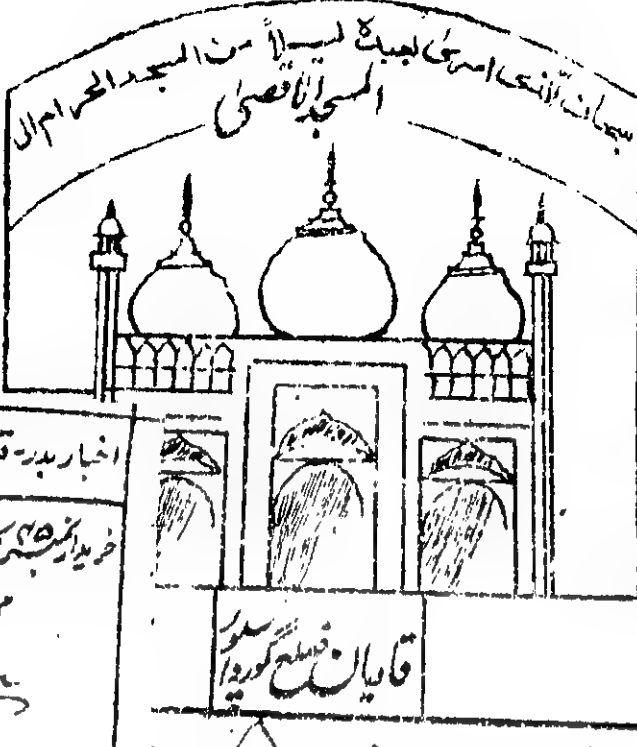 سبحان الذی اسریٰ بعبدہ لیلاً من المسجد الحرام الی
المسجد الاقصیٰ
اخبار بدر
خریدار نمبر ۴۵
قادیان ضلع گورداسپور